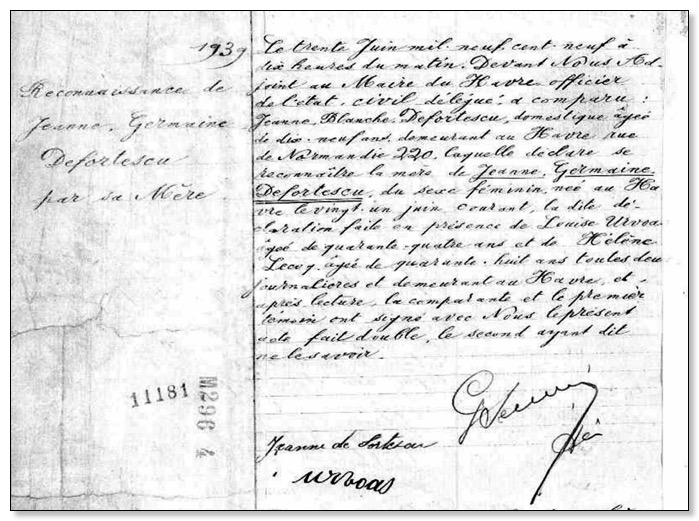 1939
Reconnaissance de
Jeanne, Germaine
Defortescu
par sa Mère
Le trente Juin mil neuf cent neuf à
dix heures du matin. Devant Nous Ad-
joint au Maire du Havre officier
de l'état civil délégué, a comparu :
Jeanne, Blanche, Defortescu, domestique âgée
de dix-neuf ans, demeurant au Havre rue
de Normandie 220, laquelle déclare se
reconnaître la mère de Jeanne, Germaine
Defortescu, du sexe féminin, née au Ha-
vre le vingt-un juin courant, la dite dé-
claration faite en présence de Louise Urvoas
âgée de quarante-quatre ans et de Hélène
Lecoq, âgée de quarante-huit ans toutes deux
journalières et demeurant au Havre, et,
après lecture, la comparante et le premier
témoin ont signé avec Nous le présent
acte fait double, le second ayant dit
ne le savoir.
11181
M296 4
Jeanne de Fortescu
Urvoas